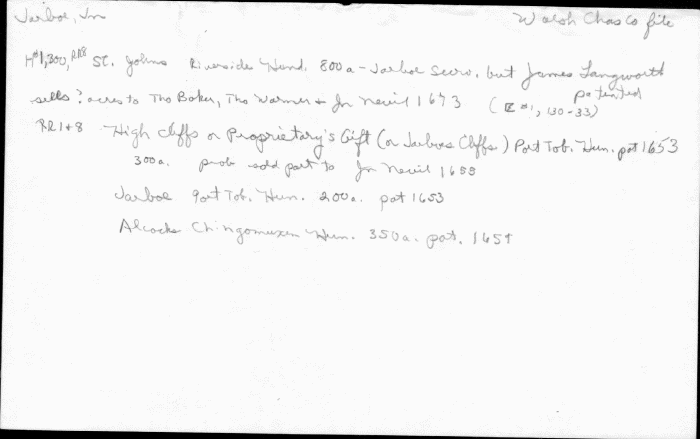 Jarboe, Jno
Walsh Chas Co file
H#1,300, RR8 St. Johns Riverside Hund. 800a - Jarboe surv. but James Langworth patented
sells ? acres to Tho Baker, Tho Warner + Jn Nevil 1673 (#1, 130-33)
RR 1+8 High Cliffs or Proprietary's Gift (or Jarboes Cliffs) Port Tob. Hun. pat 1653
300a. prob sold part to Jn Nevil 1658
Jarboe Port Tob. Hun. 200a. pat 1653
Alcocks Chingomuxen Hun. 350a. pat.